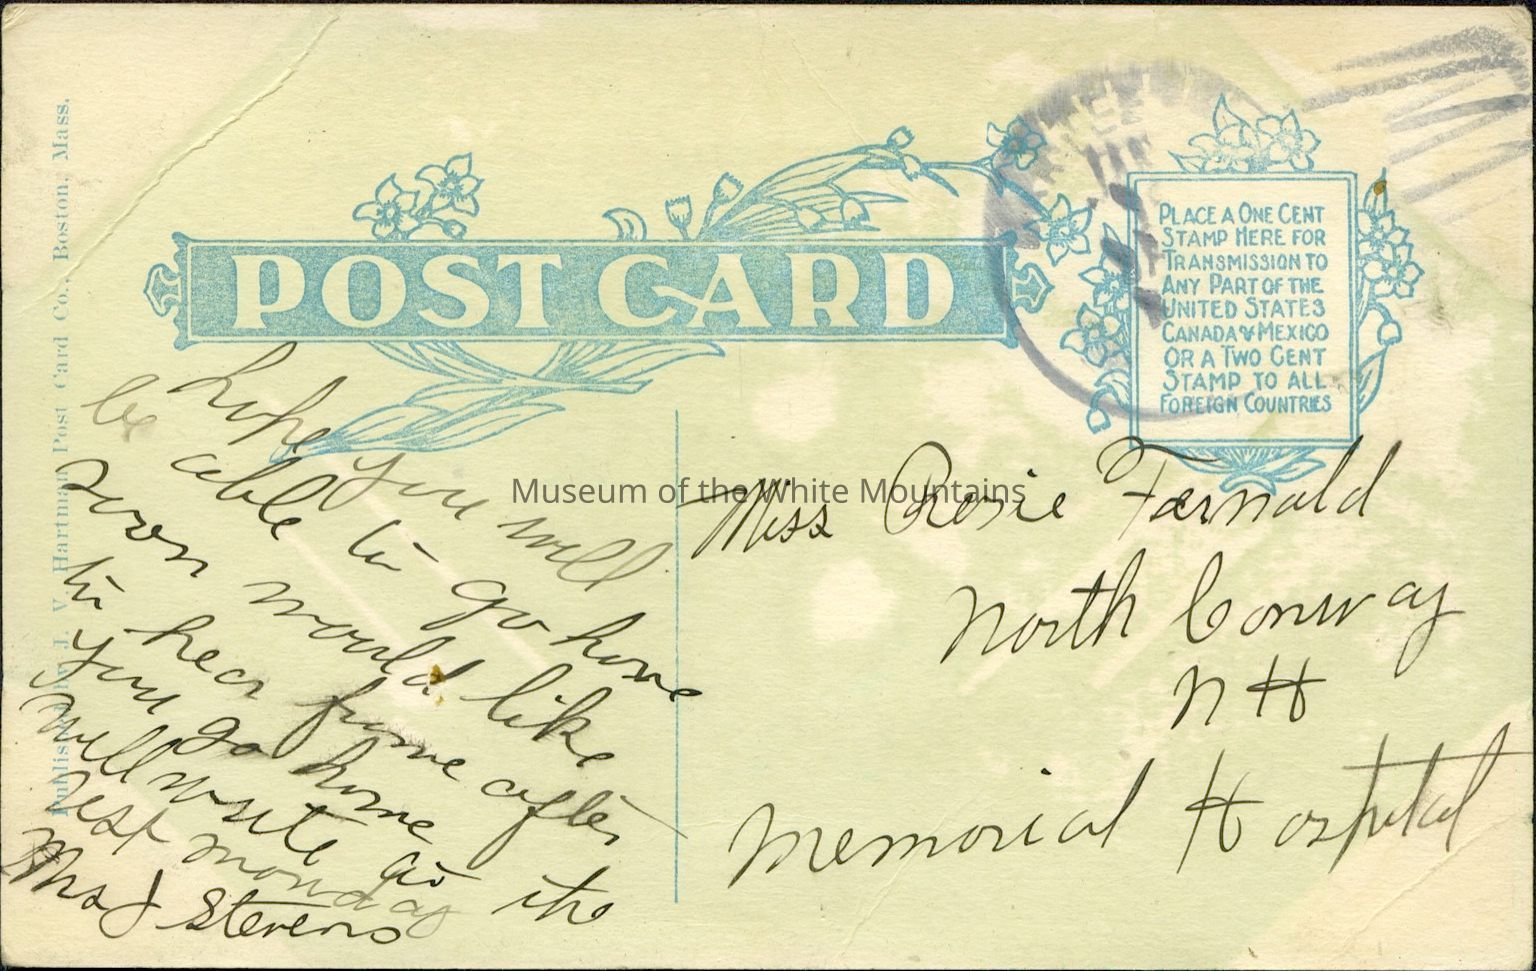 POST CARD
PLACE A ONE CENT
STAMP HERE FOR
TRANSMISSION TO
ANY PART OF THE
UNITED STATES
CANADA & MEXICO
OR A TWO CENT
STAMP TO ALL
FOREIGN COUNTRIES
Published by J. V. Hartman Post Card Co., Boston, Mass.
hope you will
be able to go home
soon would like
to hear frome after
you go home
will write to the
rest monday
Mrs J Stevens
Museum of the White Mountains
Miss Rosie Fernald
North Conway
N H
Memorial Hospital